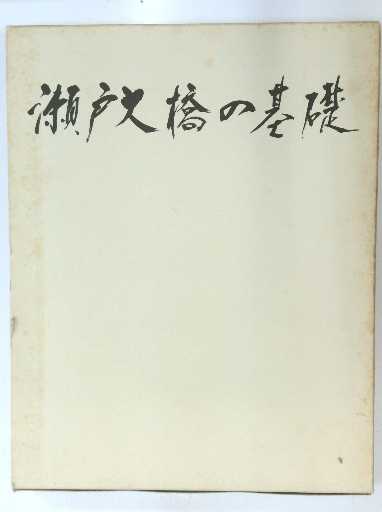 瀬戸大橋の基礎